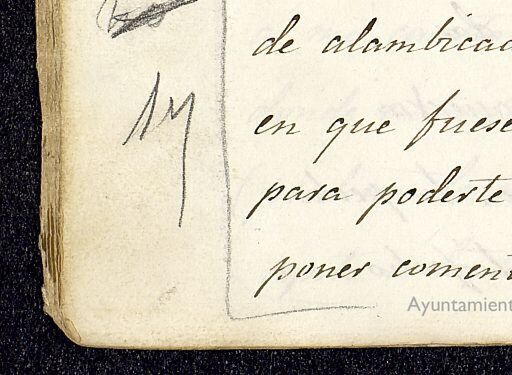 de alambicad
en que fuese
para poderte
poner coment
Ayuntamient